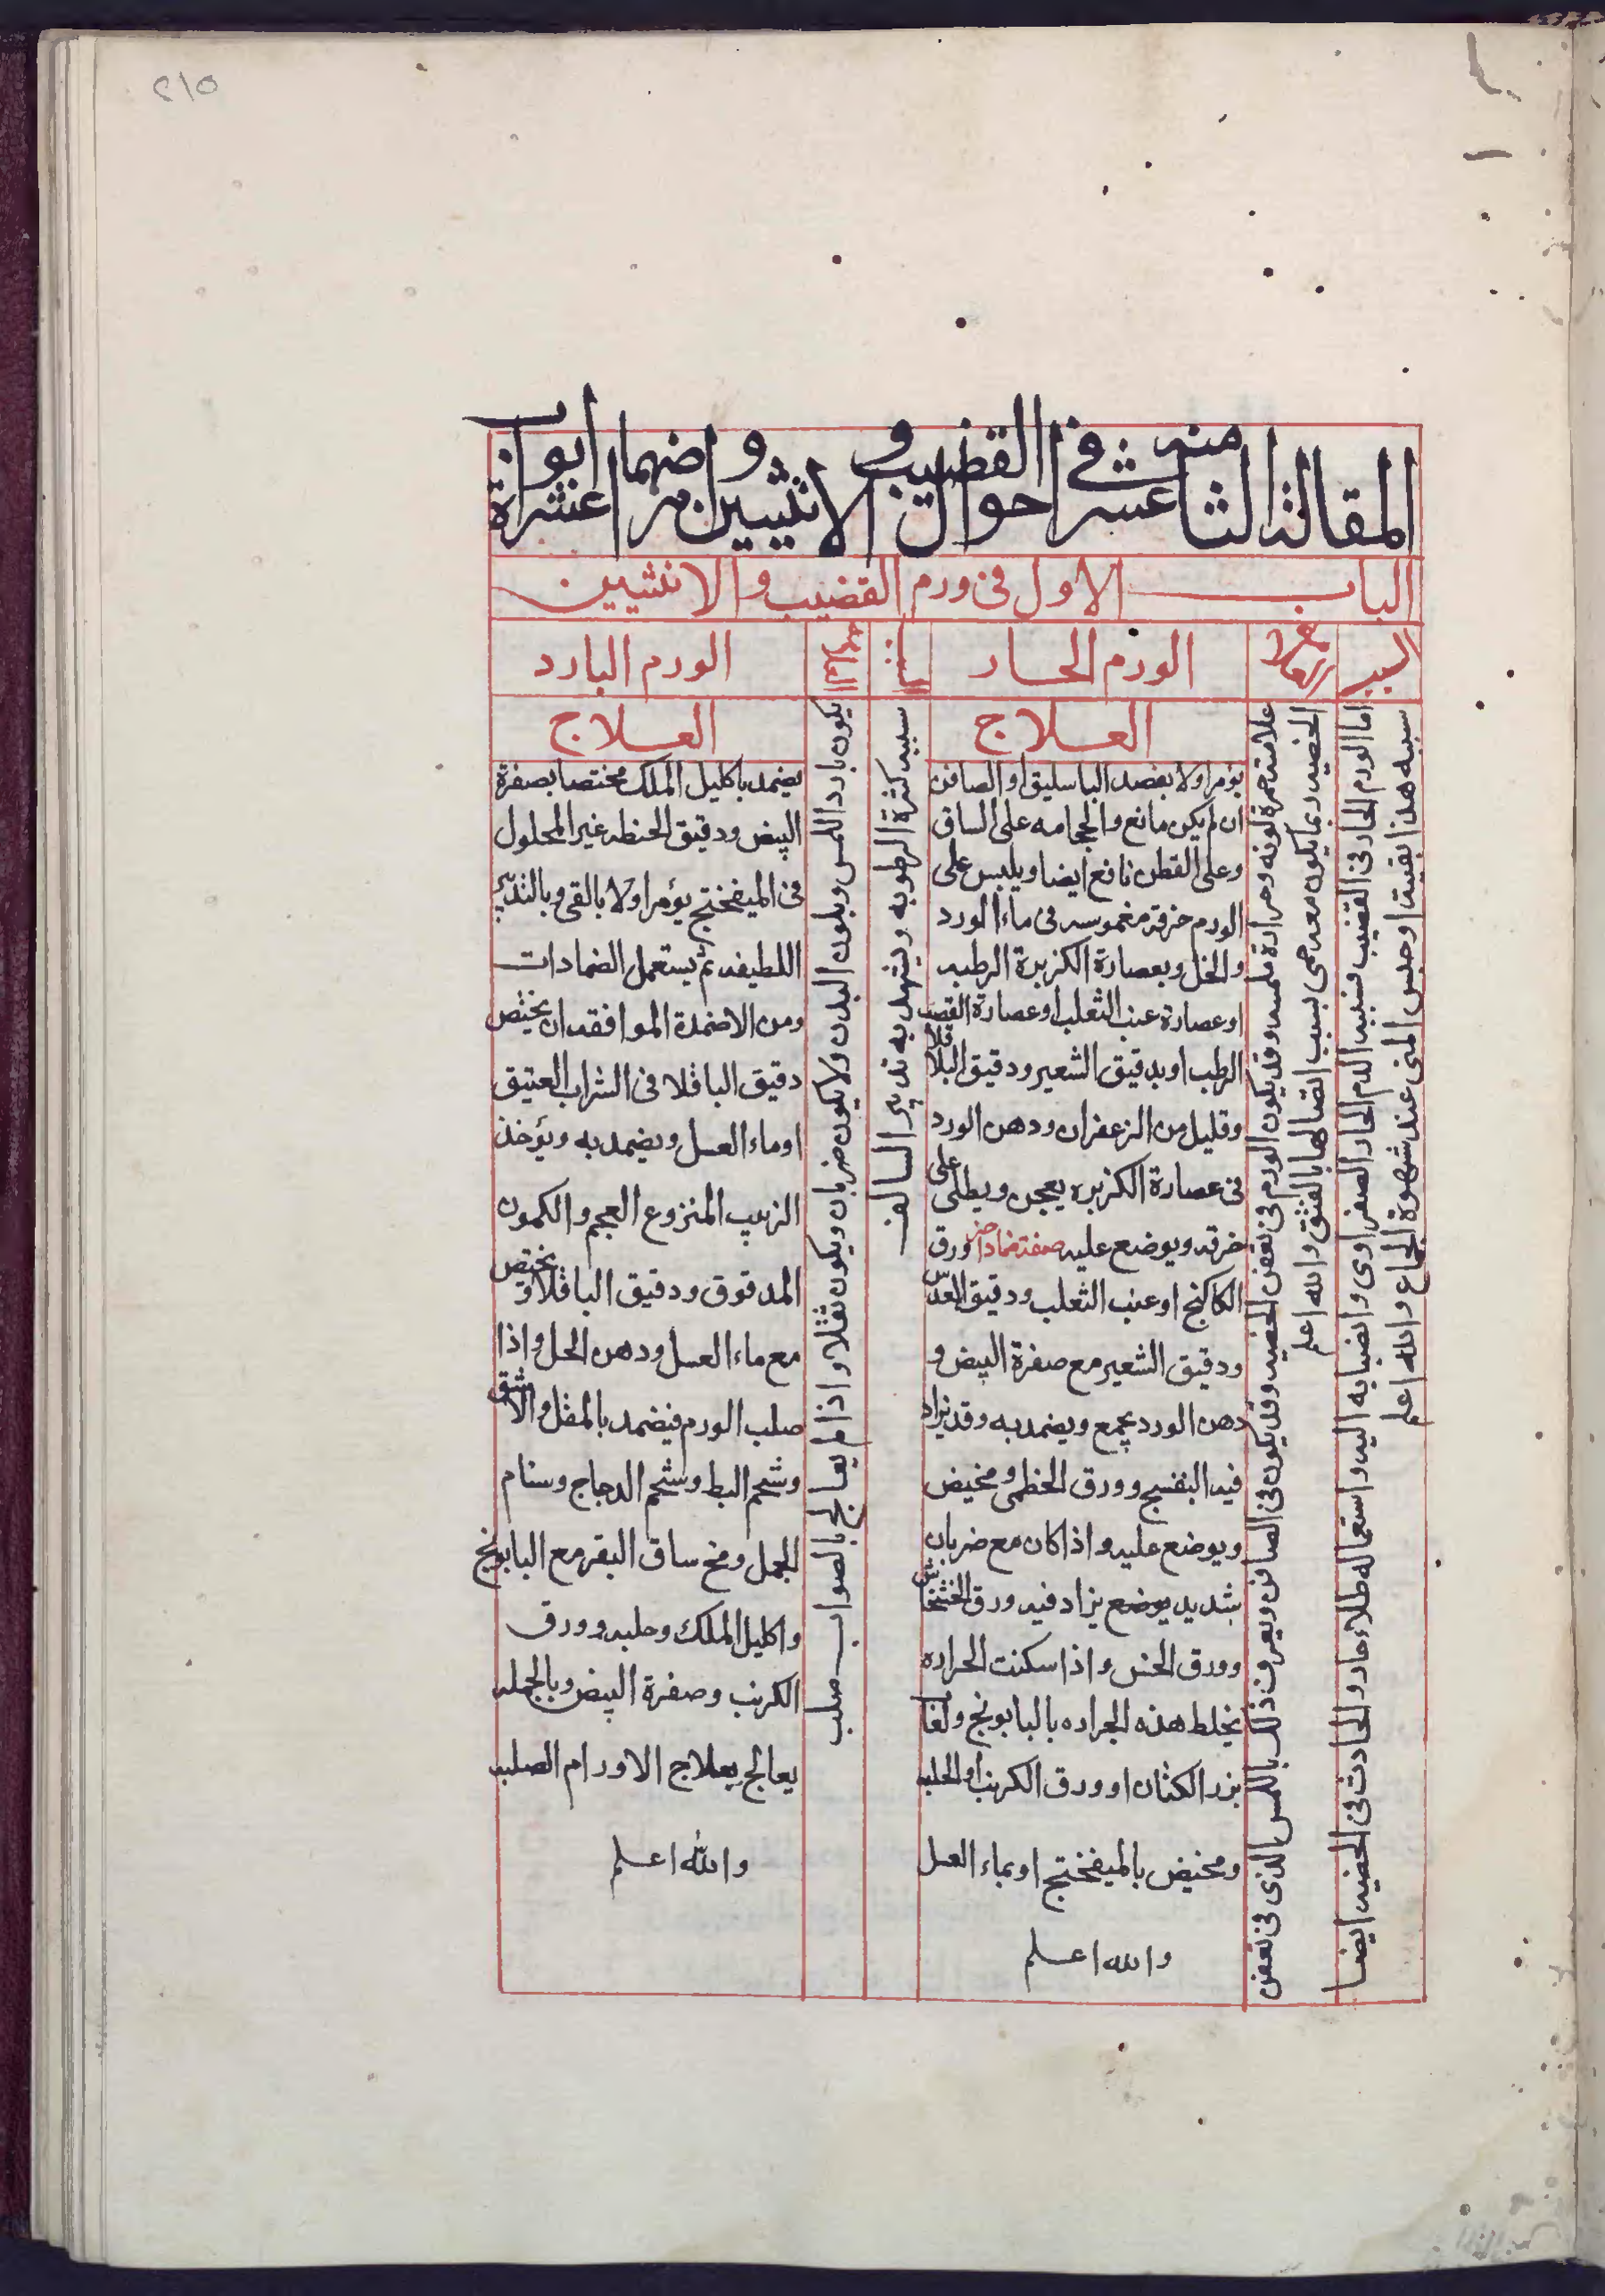 ٢١٥
المقالة الثامنة عشر في احوال القضيب و الانثيين وامراضهما عشرة ابواب
الباب الاول فى ورم القضيب والانثيين
السبب
العلامة
الورم الحار
السبب
العلامة
الورم البارد
اما الورم الحار فى القضيب فسببه الدم الحار الصفراوى وانصبابه اليه واستعماله طلاء حار والحادث فى الخصيه ايضا
سببه هذا بقيته او حبس المنى عند شهوة الجماع والله اعلم
علامته حمرة لونه وحرارة ملمسه وقد يكون الورم فى نفس الخصيه وقد يكون فى الصافن ويعرف ذلك باللمس الذى فى نفس
الخصيه ربما يكون معه حمى بسبب اتصالها بالفتق والله اعلم
العلاج
يؤمر اولا بفصد الباسليق او الصافن
ان لم يكن مانع والحجامه على الساق
وعلى القطن نافع ايضا ويلبس على
الورم خرقة مغموسه فى ماء الورد
والخل وبعصارة الكزبرة الرطبه
او عصارة عنب الثعلب او عصارة القصب
الرطب او بدقيق الشعير ودقيق الباقلا
وقليل من الزعفران ودهن الورد
فى عصارة الكزبره يعجن ويطلى على
خرقه ويوضع عليه صفة ضماد اخر ورق
الكاكنج او عنب الثعلب ودقيق العدس
ودقيق الشعير مع صفرة البيض و
دهن الورد يجمع ويضمد به وقد يزاد
فيه البنفسج وورق الخطمى ومخيض
ويوضع عليه واذا كان مع ضربان
شديد يوضع يزاد فيه ورق الخشخاش
وورق الخس واذا سكنت الحراره
يخلط هذه الجراده بالبابونج ولعاب
بزر الكتان او ورق الكرنب او الحلبه
ومخيض بالميفختج او بماء العسل
والله اعلم
سببه كثرة الرطوبه ويشهد به تدبير السالف
يكون بارد اللمس وبلون البدن ولا يكون ضربان ويكون ثقلا واذا لم يعالج بالصواب صلب
العلاج
يضمد باكليل الملك مختصا بصفرة
البيض ودقيق الحنطه غير المحلول
فى الميفختج يؤمر اولا بالقى وبالتدبير
اللطيفه ثم يستعمل الضمادات
ومن الاضمدة الموافقه ان يخيص
دقيق الباقلا فى الشراب العتيق
او ماء العسل ويضمد به ويؤخذ
الزبيب المنزوع العجم والكمون
المدقوق ودقيق الباقلا ويخيص
مع ماء العسل ودهن الحل واذا
صلب الورم فيضمد بالمقل والاشق
وشحم البط وشحم الدجاج وسنام
الجمل ومخ ساق البقر مع البابونج
واكليل الملك وحلبه وورق
الكرنب وصفرة البيض وبالجمله
يعالج بعلاج الاورام الصلبه
والله اعلم